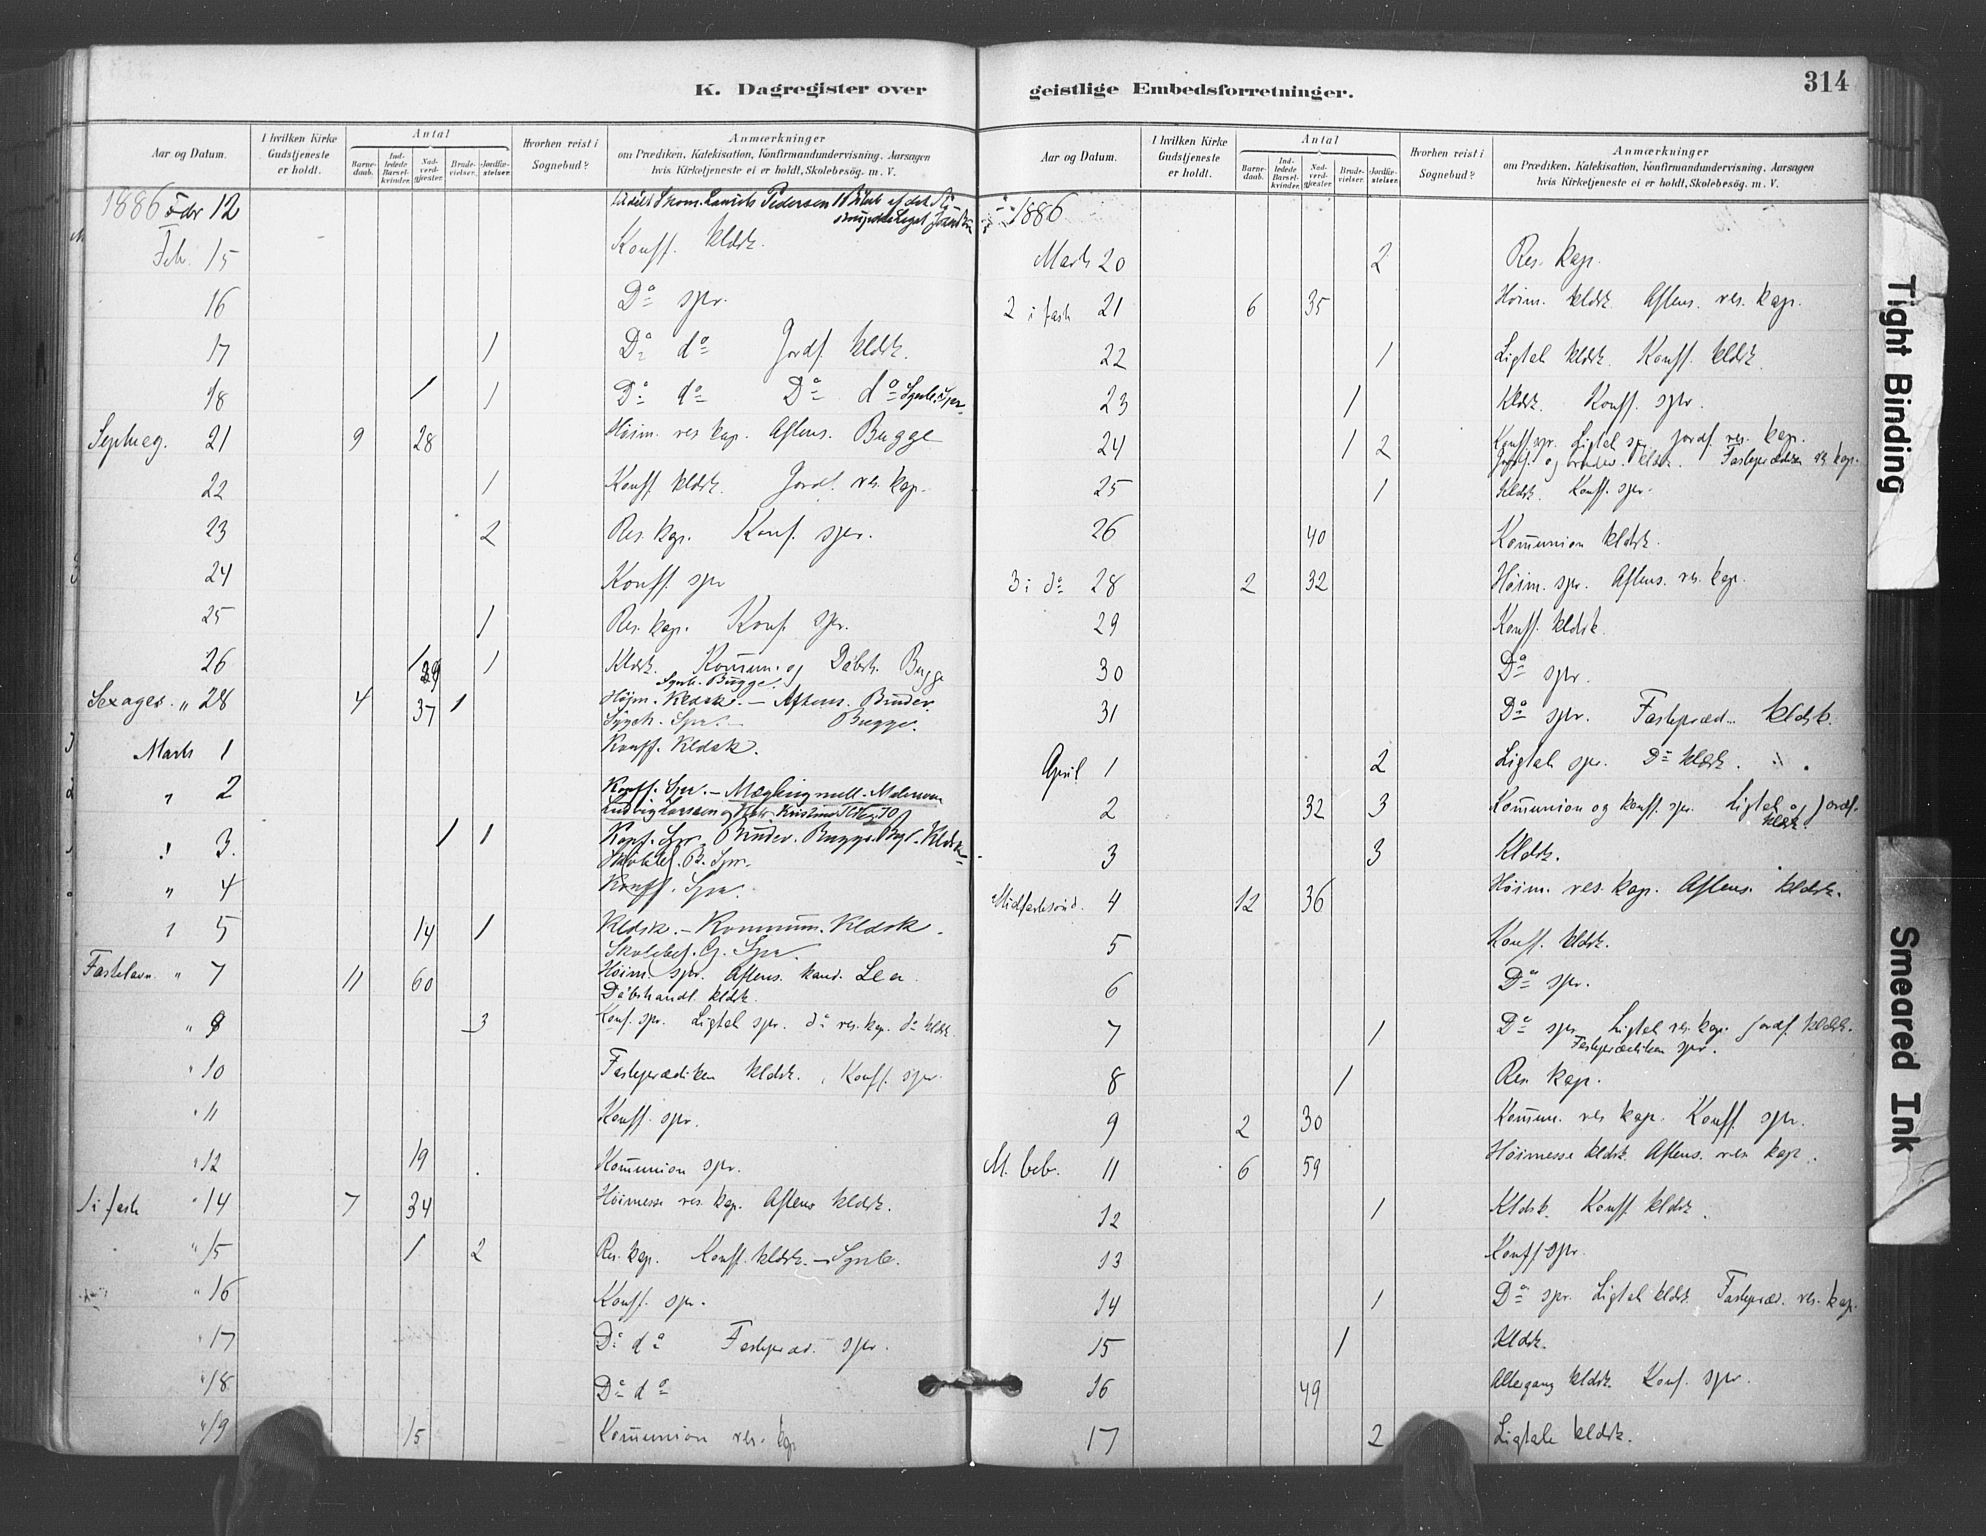 K. Dagregister over
Aar og Datum.
I hvilken Kirke Gudstjeneste er holdt.
Antal
Barne-daab.
Ind-ledede Barsel-kvinder.
Nad-verd-gjester.
Brude-vielser.
Jordfæ-stelser.
Hvorhen reist i Sognebud?
Anmærkninger
om Prædiken, Katekisation, Konfirmandundervisning, Aarsagen
hvis Kirketjeneste ei er holdt, Skolebesøg. m. V.
1886 Febr 12 Laurits Pedersen
Feb. 15 Konff. kldsk.
16 Do spr.
17 1 Do do Jordf. kldsk.
18 1 1 Do do Do do
Septuag. 21 9 28 Høim. res kap. Aftens. Bugge
22 1 Konff kldsk. Jordf. res. kap.
23 2 Res. kap. Konf. spr.
24 Konff spr
25 1 Res. kap. Konf. spr.
26 1 Kldsk. Kommun. og Døbeh. Bugge
Bugge.
Sexages. " 28 4 37 1 Høim. Kldsk. – Aftens. Bruder.
Bugge.
Marts 1 Konff. Kldsk.
" 2 Konff. Spr. – Mægling mell.
Ludvig Larssen og
" 3. 1 1 Konf. Spr. Bruder. Bugge. Kldsk.
Skolebes. B. Spr.
" 4 Konff. Spr.
" 5 14 1 Kldsk. – Kommun. Kldsk.
Skolebes. G. Spr.
Fastelavn " 7 11 60 Høim spr. Aftens. kand. Lea
Døbehandl. kldsk.
" 9 3 Konf. spr. Ligtal spr. do res. kap. do kldsk.
" 10 Fasteprædiken kldsk. Konff. spr.
" 11 Konff. spr.
" 12 19 Kommunion spr.
1 i fast " 14 7 34 Høimesse res. kap. Aftens kldsk.
" 15 1 2 Res. kap. Konff. kldsk. –
" 16 Konff. spr.
" 17 Do do Fastepræd. spr.
" 18 Do do
" 19 15 Kommunion res. kap
geistlige Embedsforretninger.
314
Aar og Datum.
I hvilken Kirke Gudstjeneste er holdt.
Antal
Barne-daab.
Ind-ledede Barsel-kvinder.
Nad-verd-gjester.
Brude-vielser.
Jordfæ-stelser.
Hvorhen reist i Sognebud?
Anmærkninger
om Prædiken, Katekisation, Konfirmandundervisning, Aarsagen
hvis Kirketjeneste ei er holdt, Skolebesøg. m. V.
1886
Marts 20 2 Res. kap.
2 i fast 21 6 35 Høim. kldsk. Aftens. res. kap.
22 1 Ligtal kldsk. Konff. kldsk.
23 1 Kldsk. Konff. spr.
24 1 2 Konff. spr. Ligtal spr. Jordf. res. kap.
Jordf. og brudev. kldsk. Fasteprædiken res kap.
25 1 Kldsk. Konff. spr.
26 40 Kommunion kldsk.
3 i do 28 2 32 Høim. spr. Aftens. res. kap.
29 Konff. kldsk.
30 Do spr.
31 Do spr. Fastepræd. kldsk.
April 1 2 Ligtale spr. Do kldsk.
2 32 3 Kommunion og konff. spr. Ligtal og Jordf.
kldsk.
3 3 Kldsk.
Midfastesønd. 4 12 36 Høim. res. kap. Aftens. kldsk.
5 Konff. kldsk.
6 Do spr.
7 1 Do spr Ligtal res. kap. Jordf. kldsk.
Fasteprædiken spr.
8 1 Res kap.
9 2 30 Kommun. res kap. Konff. spr.
M. beb. 11 6 59 Høimesse kldsk. Aftens. res kap.
12 1 Kldsk. Konff. kldsk.
13 Konff spr.
14 1 Do spr. Ligtal kldsk. Fastepræd. res. kap.
15 1 Kldsk.
16 49 Altergang kldsk. Konf. spr.
17 2 Ligtale kldsk.
Tight Binding
Smeared Ink